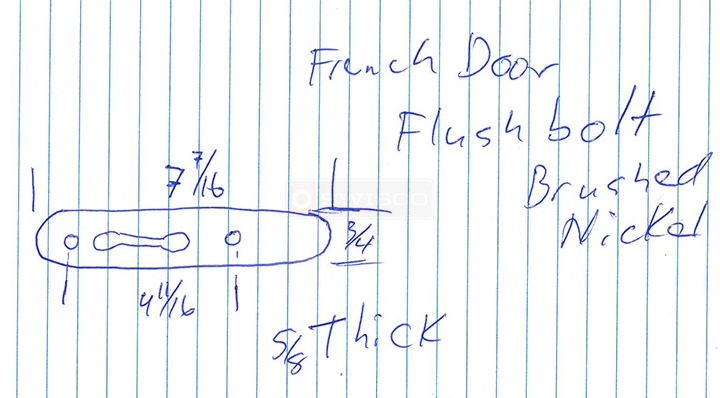 French Door
Flush bolt
Brushed
Nickel
7 7/16
3/4
4 11/16
5/8 Thick